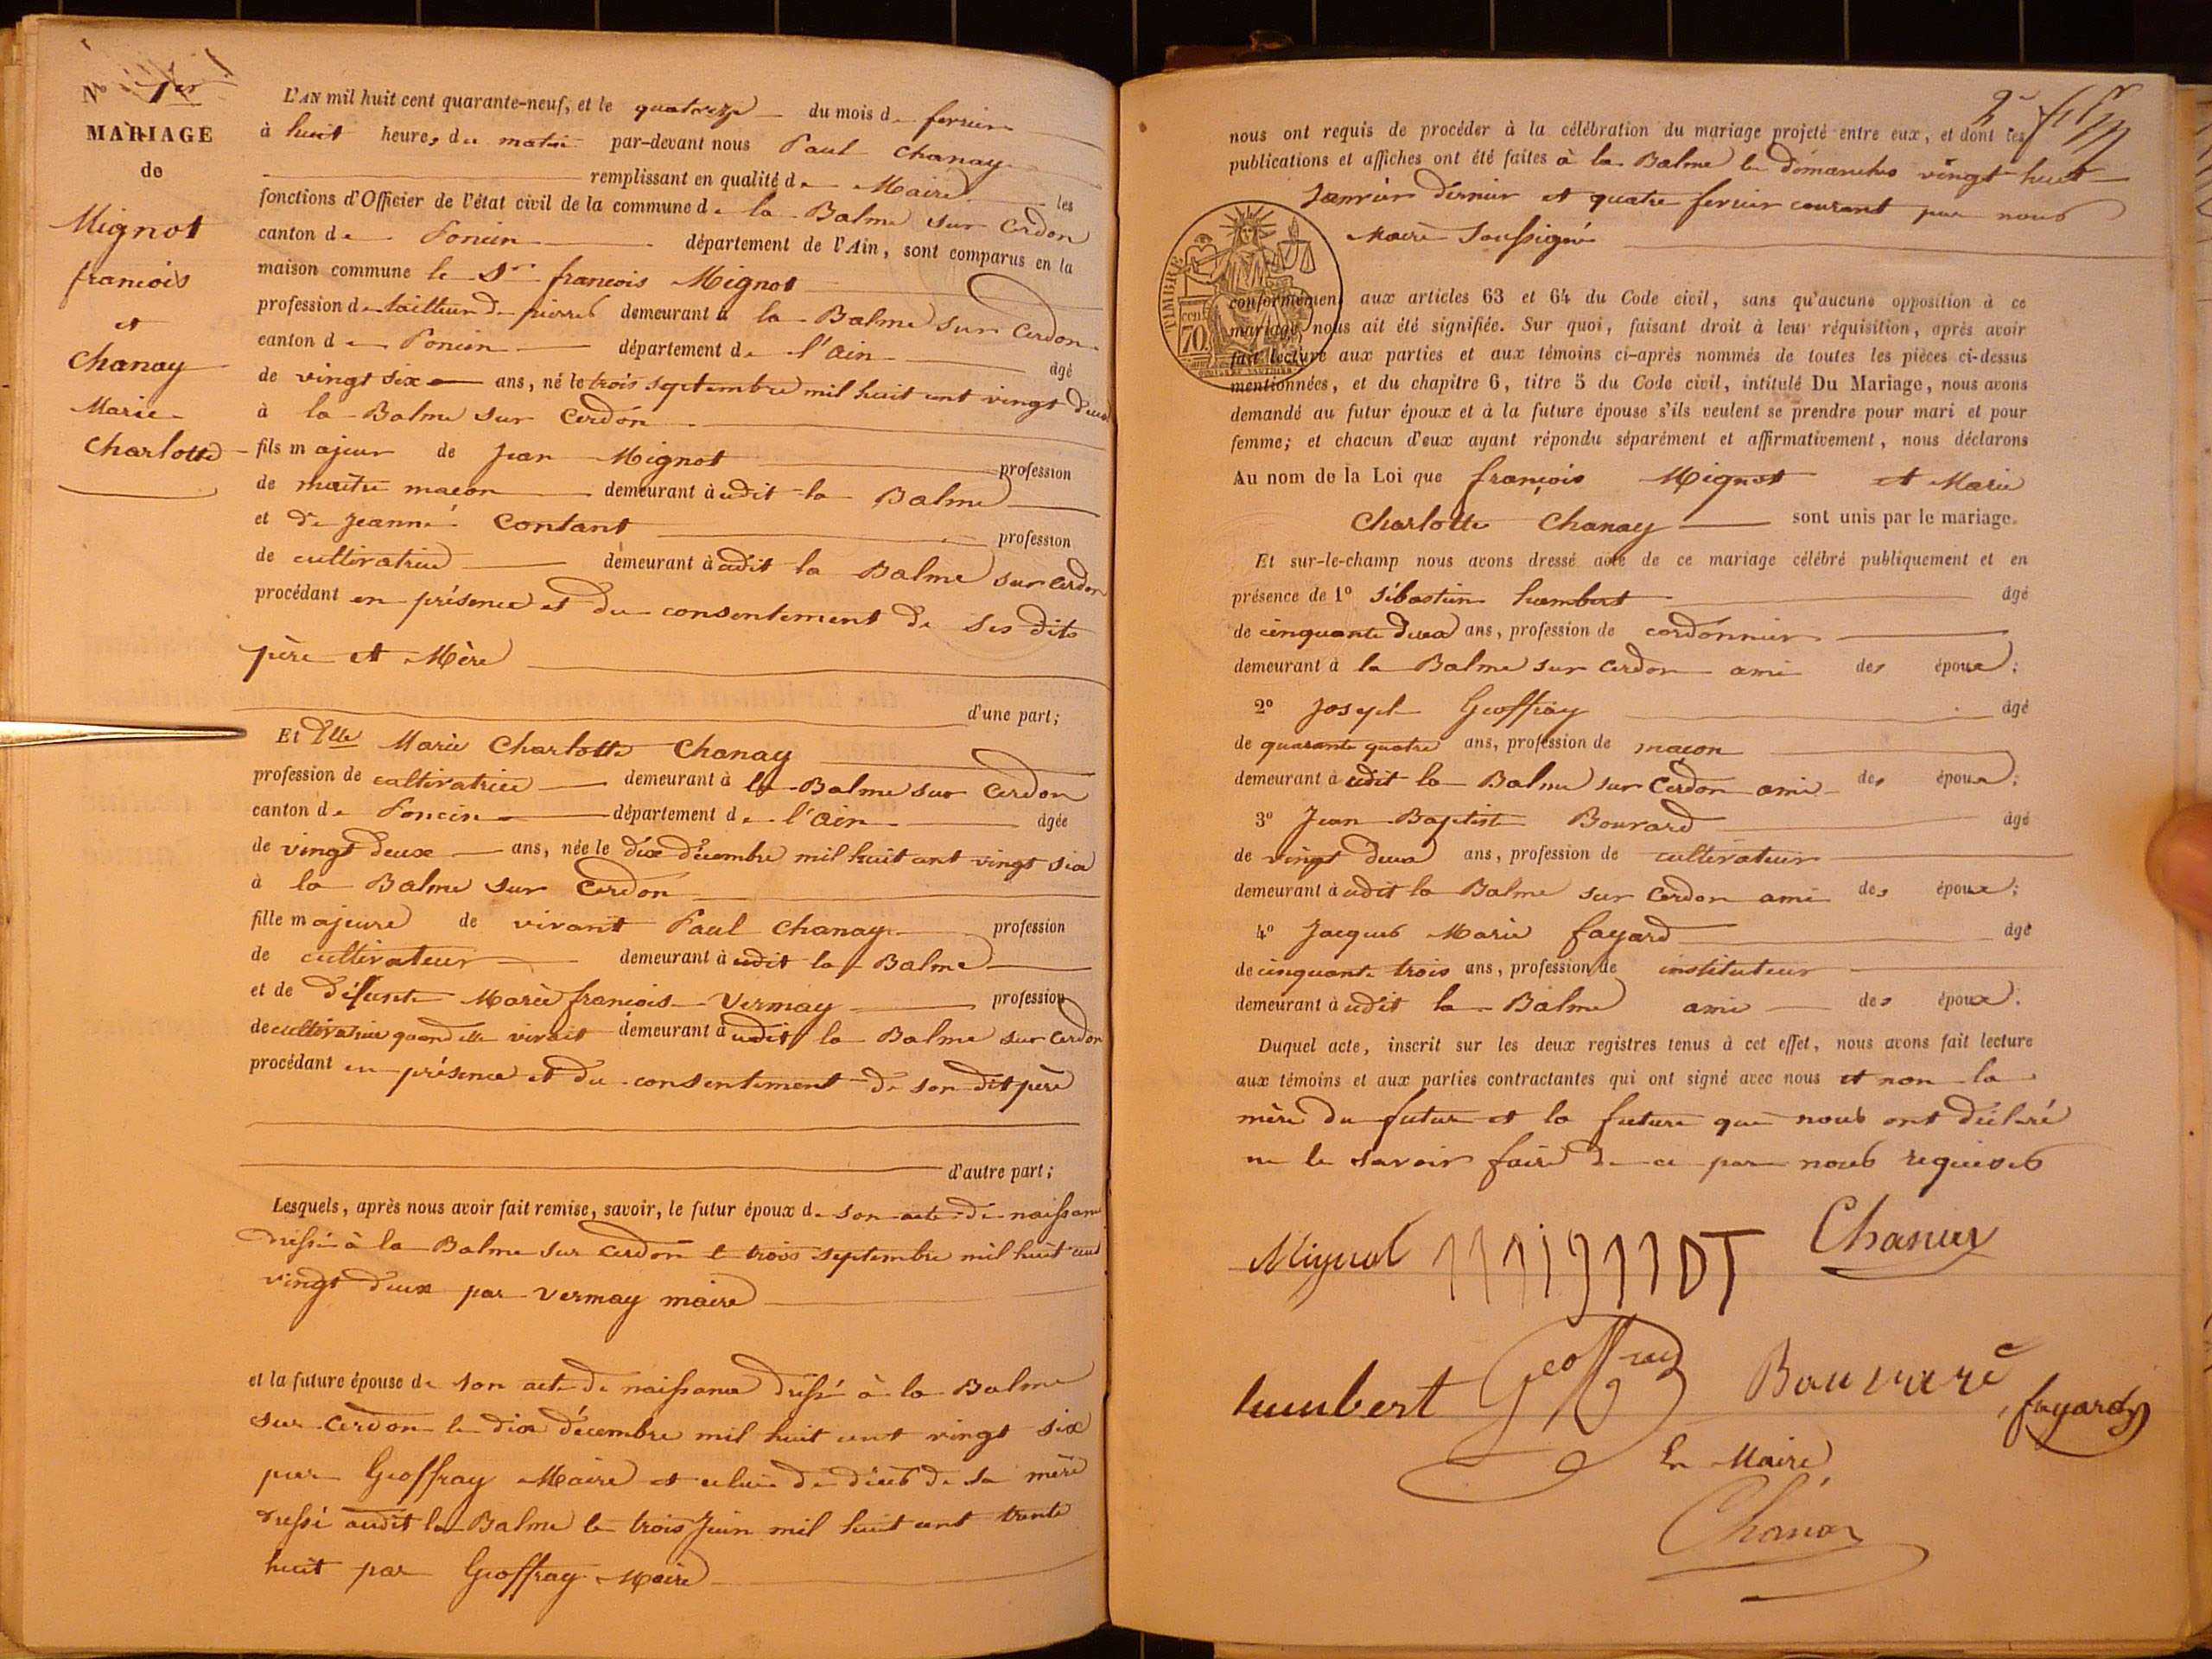 N° 1er
MARIAGE
de
Mignot
francois
et
Chanay
Marie
Charlotte
L'AN mil huit cent quarante-neuf, et le quatorze du mois de fervier
à huit heures du matin par-devant nous Paul Chanay
remplissant en qualité de Maire les
fonctions d'Officier de l'état civil de la commune de la Balme sur Cerdon
canton de Poncin département de l'Ain, sont comparus en la
maison commune le Sr francois Mignot
profession de tailleur de pierres demeurant à la Balme sur Cerdon
canton de Poncin département de l'Ain âgé
de vingt six ans, né le trois septembre mil huit cent vingt deux
à la Balme sur Cerdon
fils majeur de Jean Mignot profession
de maitre maçon demeurant à udit la Balme
et de Jeanne Contant profession
de cultivatrice demeurant à udit la Balme sur Cerdon
procédant en présence et du consentement de ses dits
père et Mère
d'une part;
Et Dlle Marie Charlotte Chanay
profession de cultivatrice demeurant à la Balme sur Cerdon
canton de Poncin département de l'Ain âgée
de vingt deux ans, née le dix décembre mil huit cent vingt six
à la Balme sur Cerdon
fille majeure de vivant Paul Chanay profession
de cultivateur demeurant à udit la Balme
et de défunte Marie francois Vermay profession
de cultivatrice quand elle vivait demeurant à udit la Balme sur Cerdon
procédant en présence et du consentement de son dit père
d'autre part;
Lesquels, après nous avoir fait remise, savoir, le futur époux de son acte de naissance
dressé à la Balme sur Cerdon le trois septembre mil huit cent
vingt deux par Vermay maire
et la future épouse de son acte de naissance dressé à la Balme
sur Cerdon le dix décembre mil huit cent vingt six
par Geoffray Maire et celui de décès de sa mère
dressé audit la Balme le trois Juin mil huit cent trente
huit par Geoffray Maire
nous ont requis de procéder à la célébration du mariage projeté entre eux, et dont les
publications et affiches ont été faites à la Balme les dimanches vingt huit
Janvier dernier et quatre fervier courant par nous
Maire soussigné
TIMBRE
70 cent
conformément aux articles 63 et 64 du Code civil, sans qu'aucune opposition à ce
mariage nous ait été signifiée. Sur quoi, faisant droit à leur réquisition, après avoir
fait lecture aux parties et aux témoins ci-après nommés de toutes les pièces ci-dessus
mentionnées, et du chapitre 6, titre 5 du Code civil, intitulé Du Mariage, nous avons
demandé au futur époux et à la future épouse s'ils veulent se prendre pour mari et pour
femme; et chacun d'eux ayant répondu séparément et affirmativement, nous déclarons
Au nom de la Loi que françois Mignot et Marie
Charlotte Chanay sont unis par le mariage.
Et sur-le-champ nous avons dressé acte de ce mariage célébré publiquement et en
présence de 1° sébastien humbert âgé
de cinquante deux ans, profession de cordonnier
demeurant à la Balme sur Cerdon ami des époux;
2° Joseph Geoffray âgé
de quarante quatre ans, profession de maçon
demeurant à udit la Balme sur Cerdon ami des époux;
3° Jean Baptiste Bouvard âgé
de vingt deux ans, profession de cultivateur
demeurant à udit la Balme sur Cerdon ami des époux;
4° Jacques Marie fayard âgé
de cinquante trois ans, profession de instituteur
demeurant à udit la Balme ami des époux.
Duquel acte, inscrit sur les deux registres tenus à cet effet, nous avons fait lecture
aux témoins et aux parties contractantes qui ont signé avec nous et non la
mère du futur et la future que nous ont déclaré
ne le savoir faire de ce par nous requises
Mignot Chanay
humbert Geoffray Bouvard fayard
Le Maire
Chanay